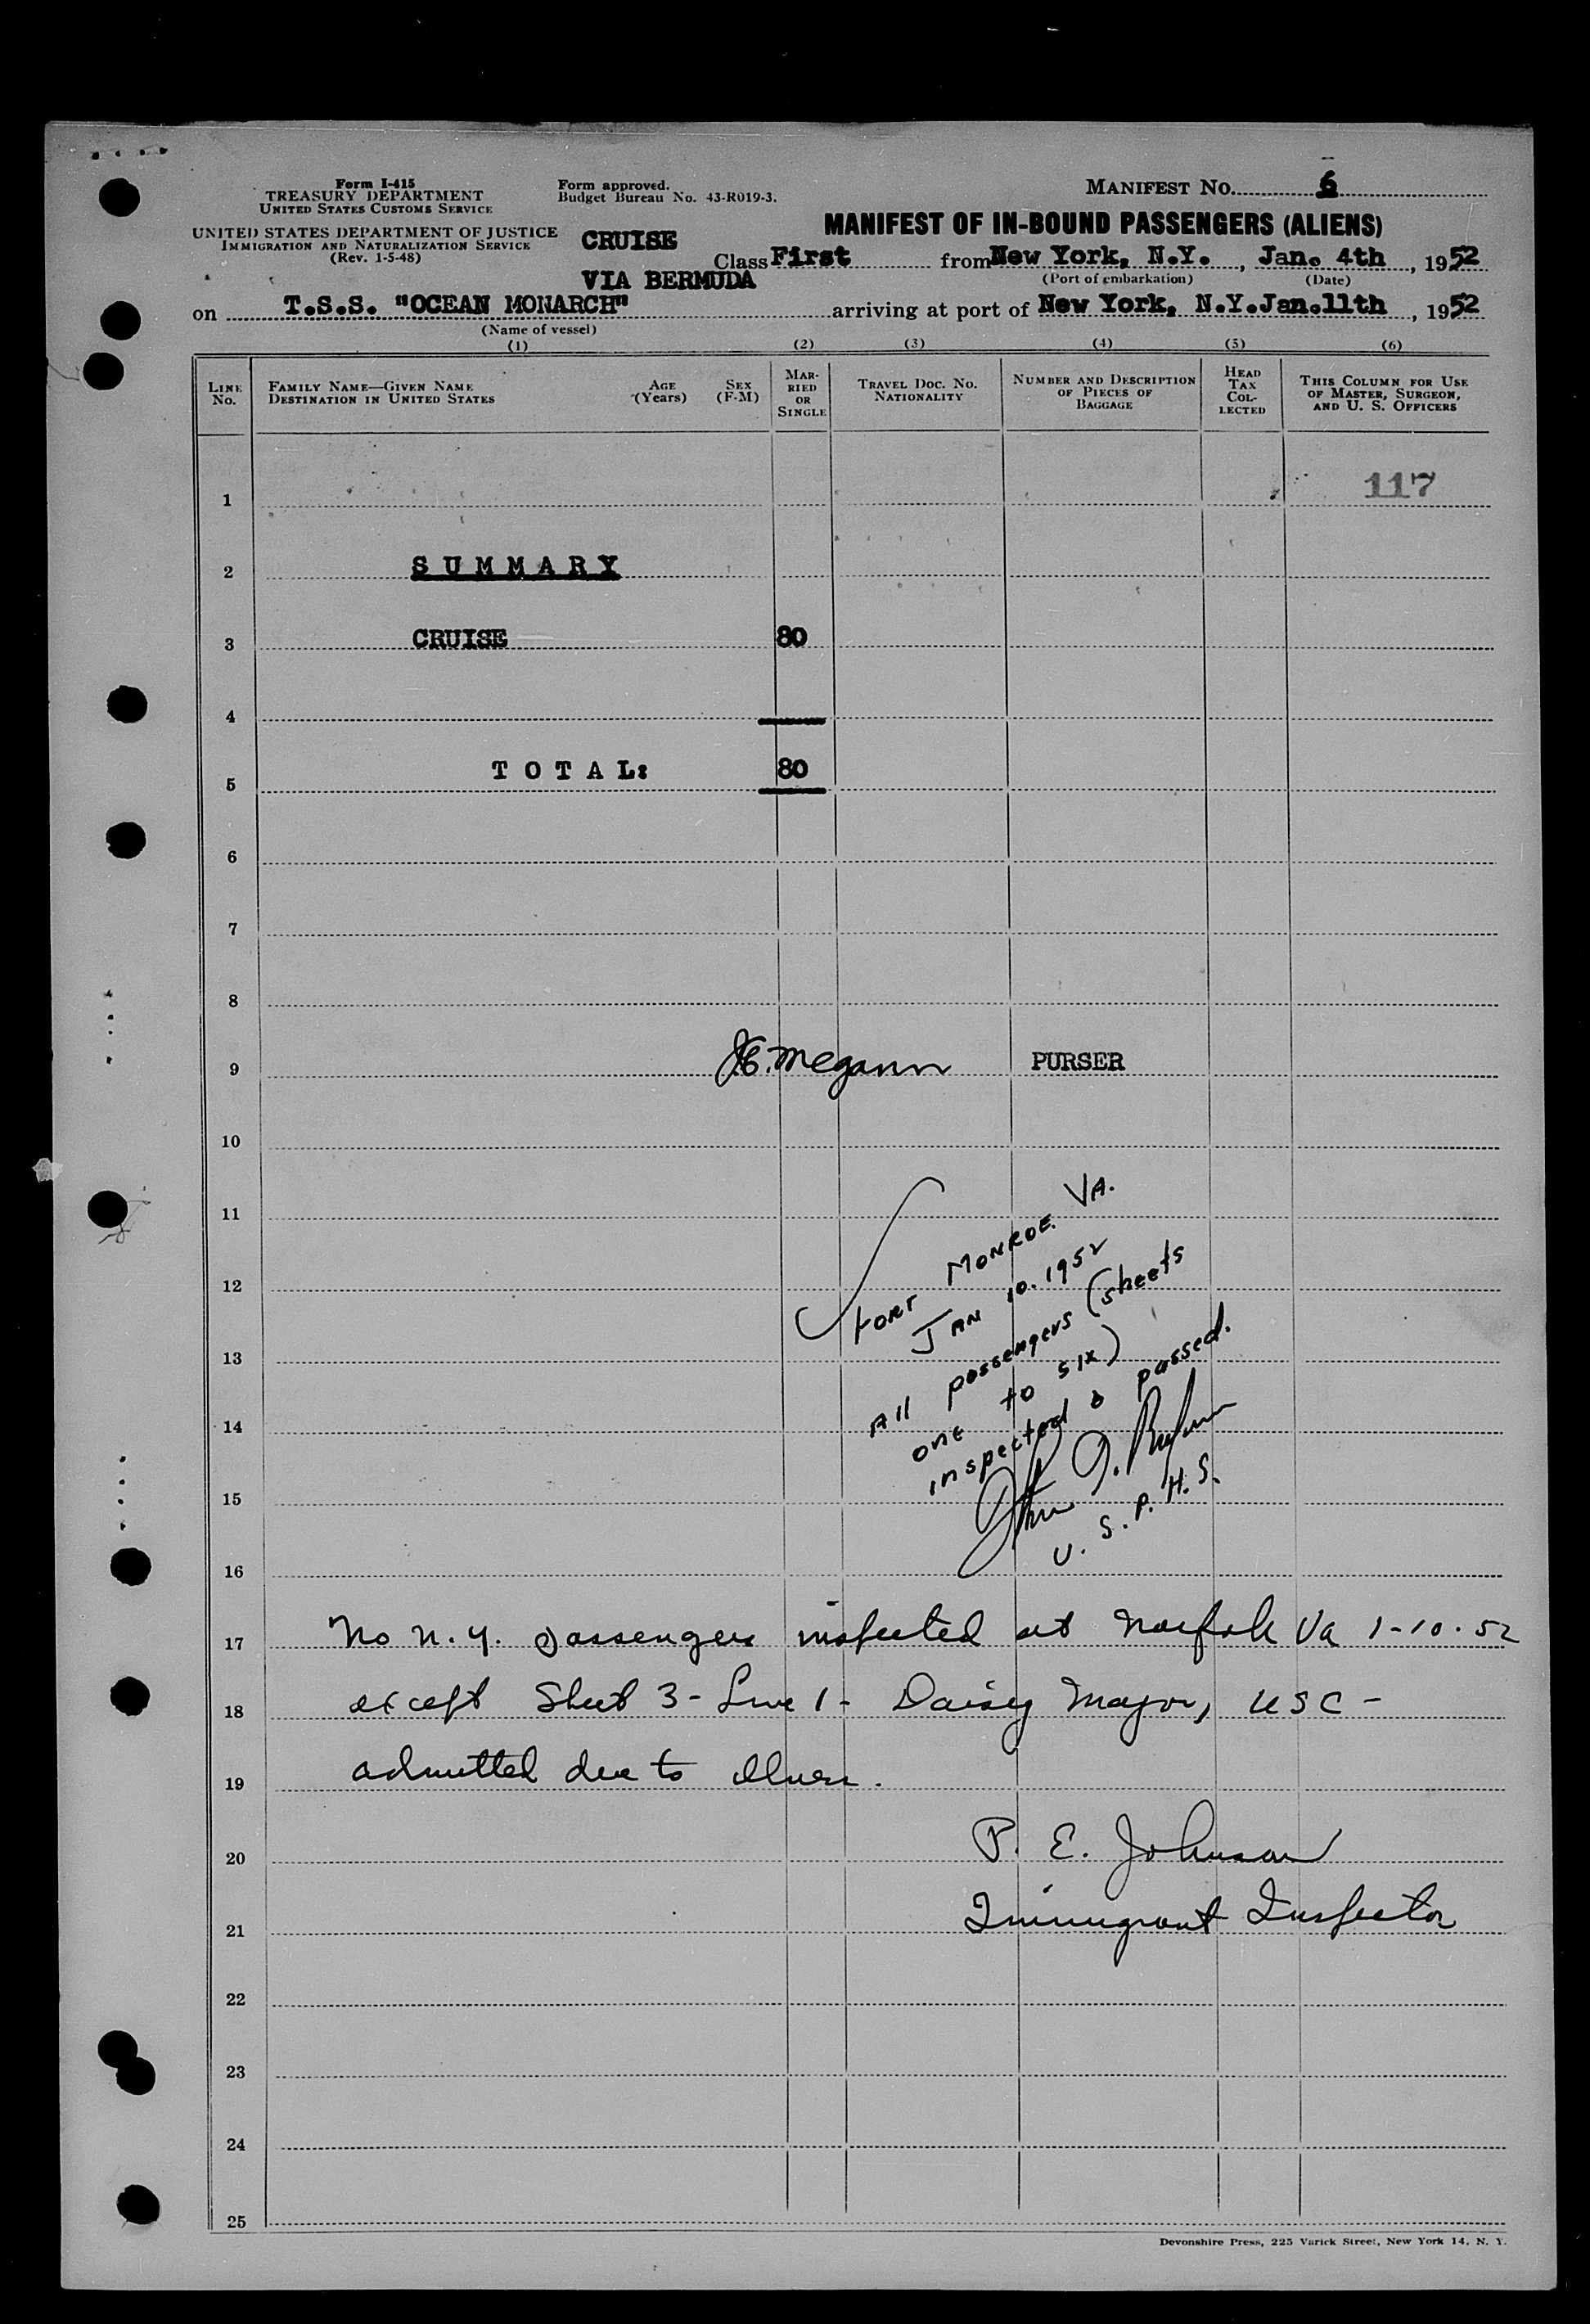 Form I-415
TREASURY DEPARTMENT
UNITED STATES CUSTOMS SERVICE
UNITED STATES DEPARTMENT OF JUSTICE
IMMIGRATION AND NATURALIZATION SERVICE
(Rev. 1-5-48)
Form approved.
Budget Bureau No. 43-R019-3.
MANIFEST No. 6
MANIFEST OF IN-BOUND PASSENGERS (ALIENS)
CRUISE
Class First from New York, N.Y., Jan. 4th, 1952
(Port of embarkation) (Date)
VIA BERMUDA
on T.S.S. "OCEAN MONARCH" arriving at port of New York, N.Y. Jan. 11th, 1952
(Name of vessel)
(1) (2) (3) (4) (5) (6)
LINE No.
FAMILY NAME—GIVEN NAME
DESTINATION IN UNITED STATES
AGE (Years)
SEX (F-M)
MARRIED OR SINGLE
TRAVEL DOC. NO.
NATIONALITY
NUMBER AND DESCRIPTION
OF PIECES OF
BAGGAGE
HEAD TAX COLLECTED
THIS COLUMN FOR USE
OF MASTER, SURGEON,
AND U. S. OFFICERS
1 117
2 SUMMARY
3 CRUISE 80
4
5 TOTAL: 80
6
7
8
9 J.E. Megann PURSER
10
11
12
13
14
15
16
Fort Monroe. VA.
Jan 10. 1952
All passengers (sheets
one to six)
inspected & passed.
U. S. P. H. S.
17 No N.Y. passengers inspected at Norfolk Va 1-10-52
18 except Sheet 3 - Line 1 - Daisy Major, USC -
19 admitted due to illness.
20 P. E. Johnson
21 Immigrant Inspector
22
23
24
25
Devonshire Press, 225 Varick Street, New York 14, N. Y.